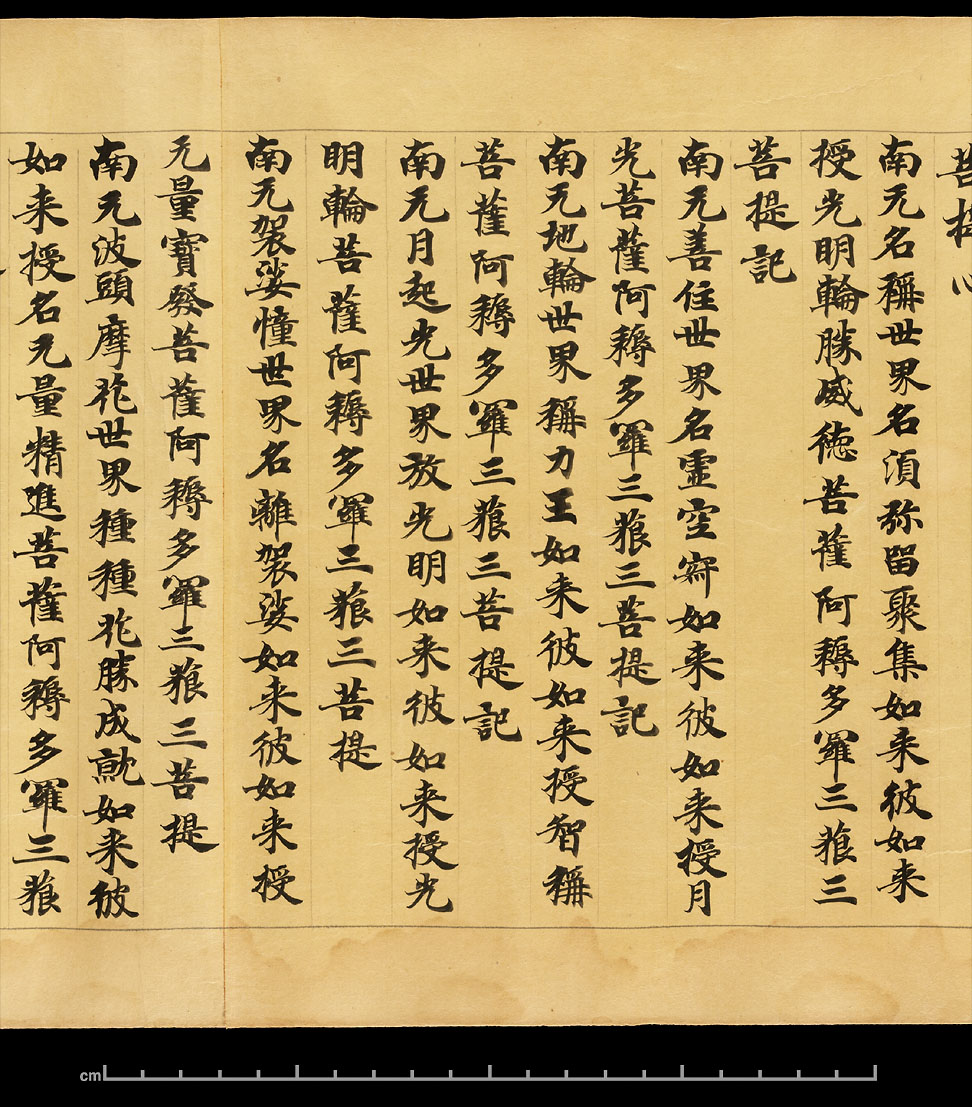 菩提記
南无名稱世界名湏弥留聚集如来彼如来
授光明輪勝威徳菩薩阿耨多羅三藐三
菩提記
南无善住世界名虚空寂如来彼如来授月
光菩薩阿耨多羅三藐三菩提記
南无地輪世界稱力王如来彼如来授智稱
菩薩阿耨多羅三藐三菩提記
南无月起光世界放光明如来彼如来授光
明輪菩薩阿耨多羅三藐三菩提
南无袈裟憧世界名離袈裟如来彼如来授
无量寶發菩薩阿耨多羅三藐三菩提
南无波頭摩花世界種種花勝成就如来彼
如来授名无量精進菩薩阿耨多羅三藐
cm